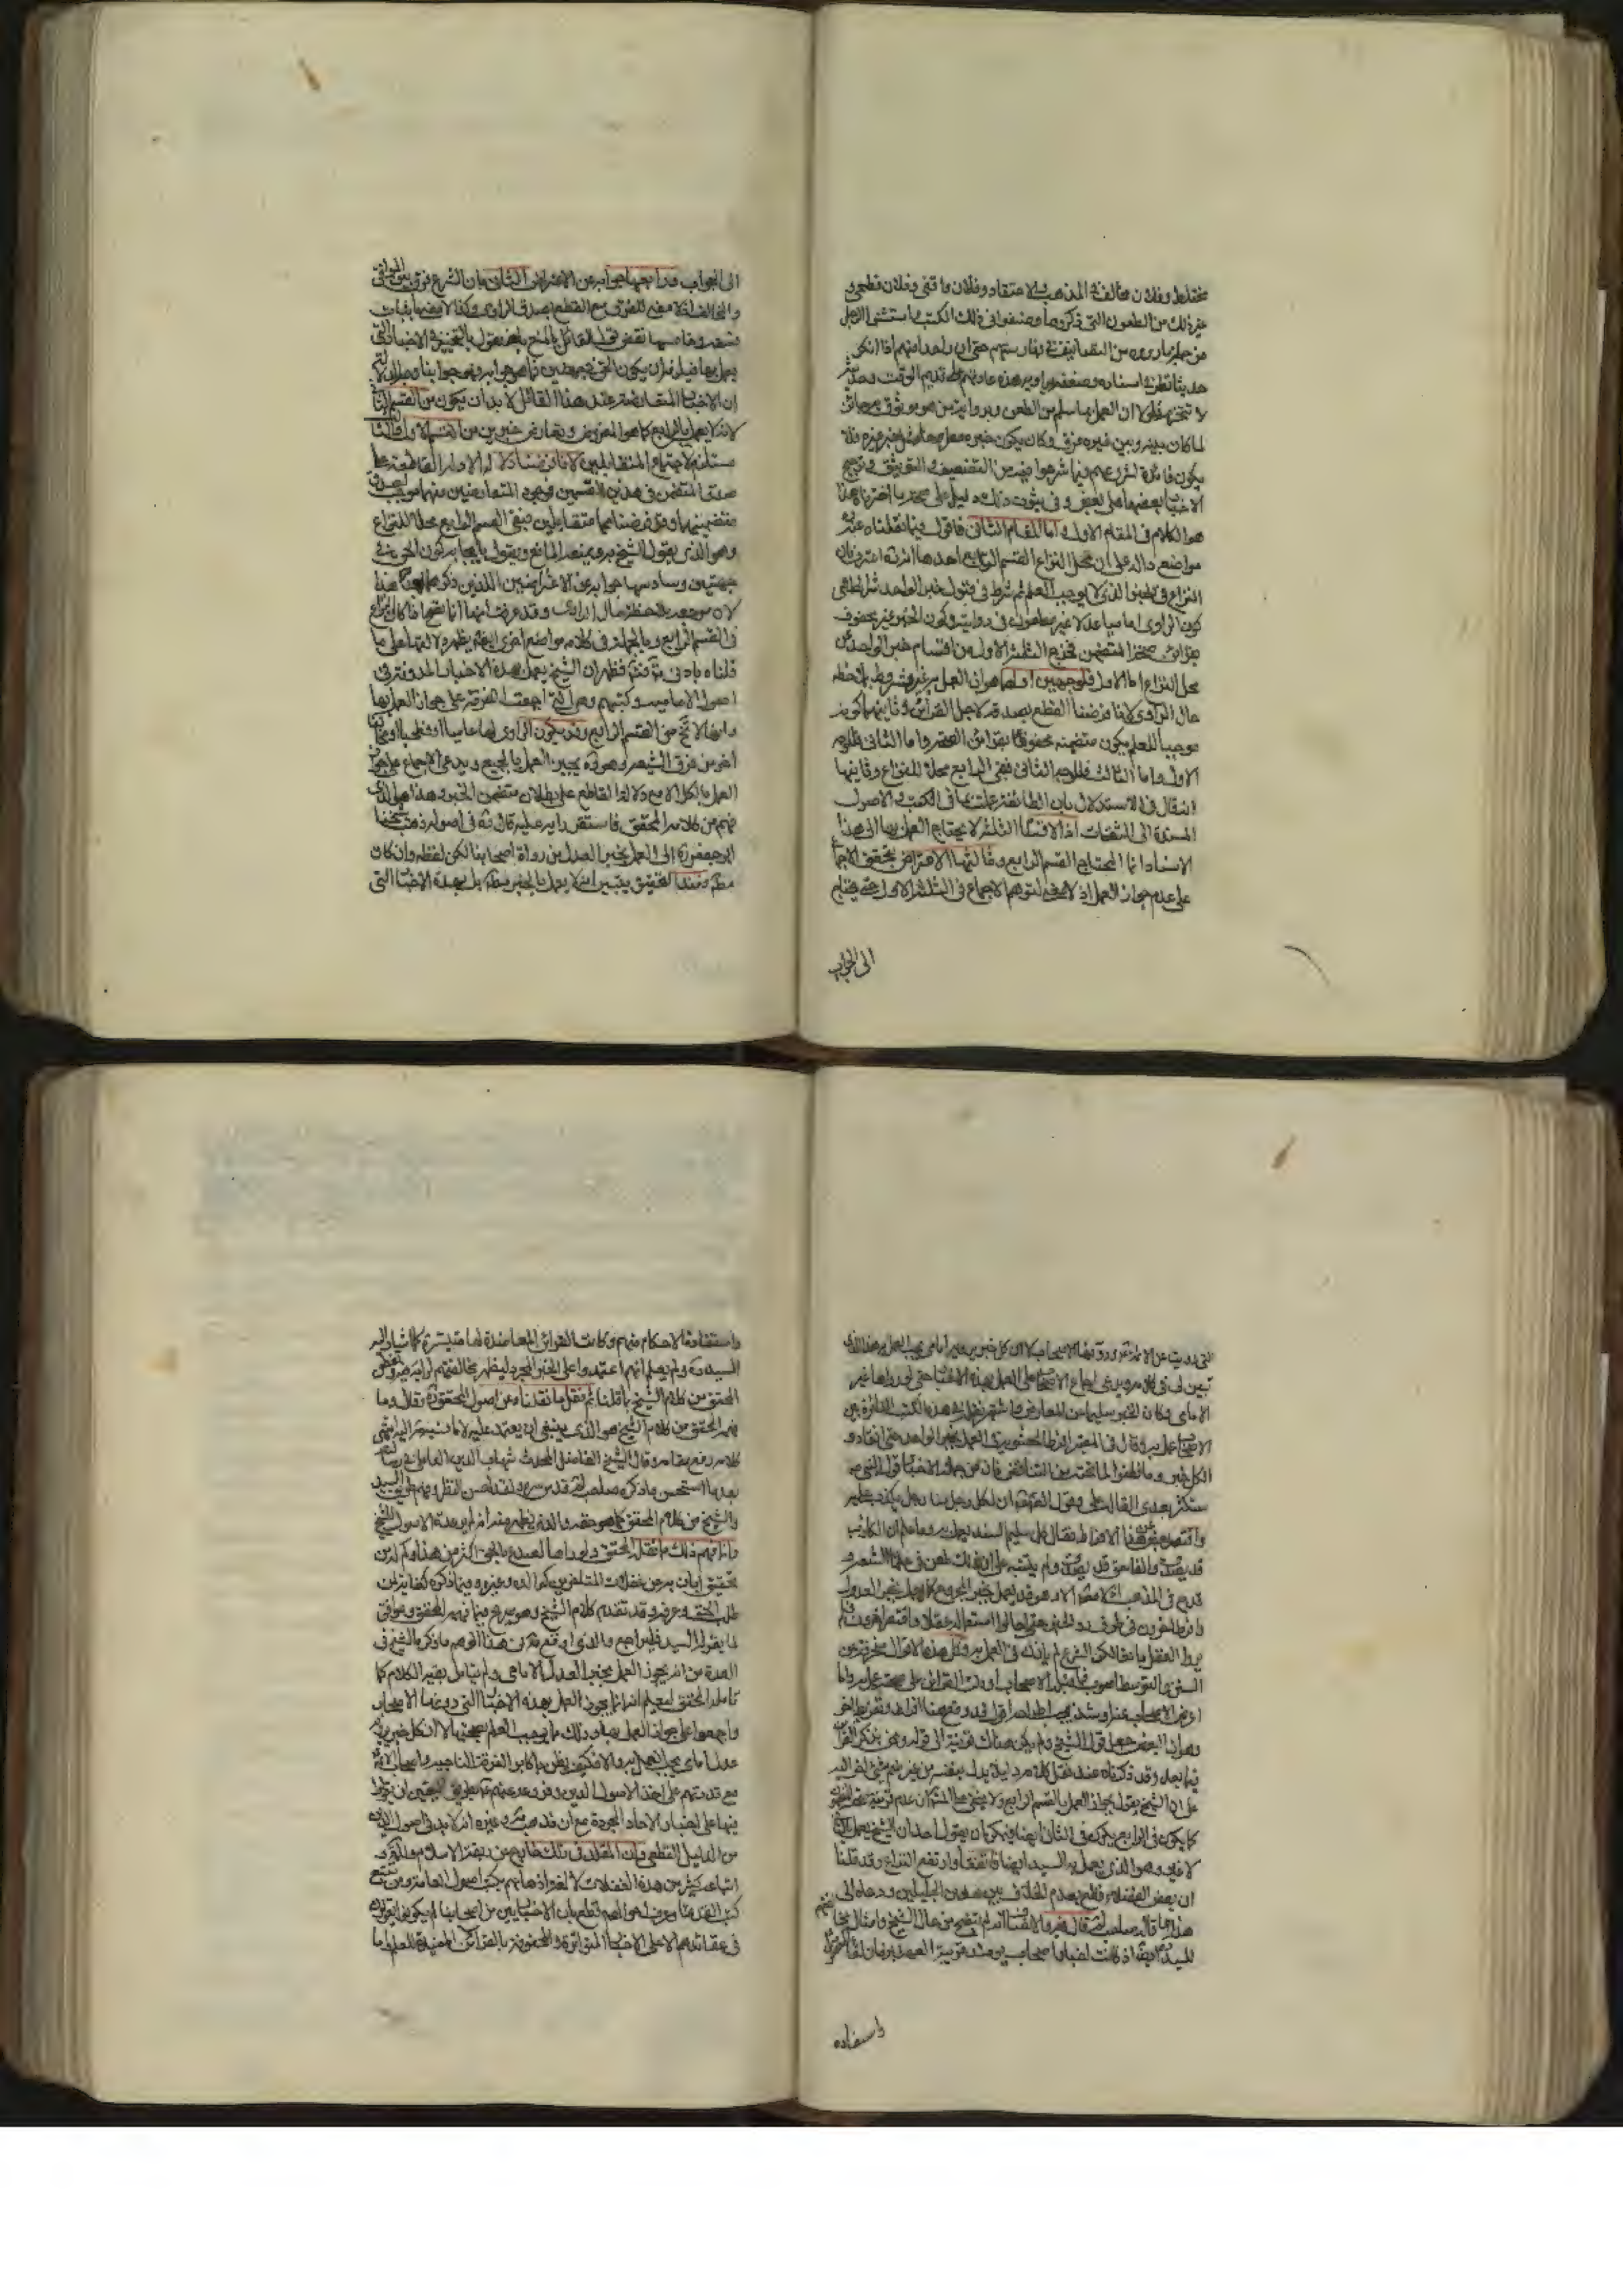 مختلط وفلان مخالف في المذهب والاعتقاد وفلان واقفي وفلان فطحي و
غير ذلك من الطعون التي ذكروها وصنفوا في ذلك الكتب واستثنوا الرجال
من جملة ما رووه من التصانيف في فهارستهم حتى ان واحدا منهم اذا انكر
حديثا نظر في اسناده وضعفه برواته هذه عادتهم على قديم الوقت وحديثه
لا تنخرم فلولا ان العمل بما يسلم من الطعن ويرويه من هو موثوق به جائز
لما كان بينه وبين غيره فرق وكان يكون خبره مطروحا مثل خبر غيره فلا
يكون فائدة لشروعهم فيما شرعوا فيه من التضعيف والتوثيق وترجيح
الاخبار بعضها على بعض وفي ثبوت ذلك دليل على صحة ما اخترناه هذا
هو الكلام في المقام الاول واما المقام الثاني فاقول فيما نقلناه عنه
مواضع دالة على ان محل النزاع القسم الرابع احدها انه اعترف بان
النزاع في الخبر الذي لا يوجب العلم ثم شرط في قبول خبر الواحد شرايط هي
كون الراوي اماميا عدلا غير مطعون في روايته وكون الخبر غير محفوف
بقرائن صحة المتضمن فخرج الثلثة الاول من اقسام خبر الواحد عن
محل النزاع اما الاول فلوجهين اولهما هو ان العمل به غير مشروط بملاحظة
حال الراوي لانا فرضنا القطع بصدقه لاجل القرائن وثانيهما كونه
موجبا للعلم بكون متضمنه محفوفا بقرائن الصحة واما الثاني فللوجه
الاول واما الثالث فللوجه الثاني فبقي الرابع محلا للنزاع وثانيها
انه قال في الاستدلال بان الطائفة عملت بما في الكتب والاصول
المسندة الى الثقات اذ الاقسام الثلثة لا يحتاج العمل بها الى هذا
الاسناد انما المحتاج القسم الرابع وثالثها الاعتراض بتحقق الاجماع
على عدم جواز العمل اذ لا وجه لتوهم الاجماع في الثلثة الاول حتى يحتاج
الى الجواب
الى الجواب ورابعها جوابه عن الاعتراض الثاني بان الشرع فرق بين الموافق
والمخالف اذ لا معنى للفرق مع القطع بصدق الراوي وكذا لا معنى
وخامسها نقض قول القائل بالمنع بانه يقول بالتخيير في الاخبار التي
يعمل بها فيلزم ان يكون الحق في جهتين فما هو جوابه فهو جوابنا
ان الاخبار المتعارضة عند هذا القائل لا بد ان يكون من القسم
لانه لا يعمل بالرابع كما هو المفروض وتعارض خبرين من القسم الاول والثالث
مستلزم لاجتماع المتقابلين لانا فرضنا دلالة الادلة القاطعة على
صدق المتضمن في هذين القسمين فوجود المتعارضين منهما موجب لصدق
متضمنيهما وقد فرضناهما متقابلين فبقي القسم الرابع محلا للنزاع
وهو الذي يقول الشيخ به ويمنعه المانع ويقول بايجابه كون الحق في
جهتين وسادسها جوابه عن الاعتراضين اللذين ذكرهما بعد هذا
لانه موجه بملاحظة حال الراوي وقد عرفت انها انما نفعها اذا كان النزاع
في القسم الرابع وبالجملة وفي كلامه مواضع اخرى ايضا يظهر دلالتها على ما
قلناه بادنى تأمل فظهر ان الشيخ يعمل بهذه الاخبار المدونة في
اصول الامامية وكتبهم وهي التي اجمعت الفرقة على جواز العمل بها
وانها لا تخرج عن القسم الرابع وقد يكون الراوي لها عاميا او فطحيا او واقفيا
آخر من فرق الشيعة وهو ره يجيز العمل بالجميع ويدعي الاجماع على جواز
العمل بالكل الا مع دلالة القاطع على بطلان متضمن الخبر وهذا هو الذي
فهم من كلامه المحقق فاستقر رايه عليه قال ره في اصوله ذهب شيخنا
ابو جعفر ره الى العمل بخبر العدل من رواة اصحابنا لكن لفظه وان كان
مطلقا فعند التحقيق يتبين انه لا يعمل بالخبر مطلقا بل بهذه الاخبار التي
التي رويت عن الائمة ع ودونها الاصحاب لا ان كل خبر يرويه امامي يجب العمل به هذا الذي
تبين لي في كلامه ويدعي اجماع الاصحاب على العمل بهذه الاخبار حتى لو رواها غير
الامامي وكان الخبر سليما عن المعارض واشتهر نقله في هذه الكتب الدائرة بين
الاصحاب عمل به وقال في المعتبر افرط الحشوية في العمل بخبر الواحد حتى انقادوا
لكل خبر وما فطنوا لما تحته من التناقض فان من جملة الاخبار قول النبي ص
ستكثر بعدي القالة علي وقول الصادق ع ان لكل رجل منا رجل يكذب عليه
واقتصر بعض عن هذا الافراط فقال كل سليم السند يعمل به وما علم ان الكاذب
قد يصدق والفاسق قد يصدق ولم يتنبه على ان ذلك طعن في علماء الشيعة و
قدح في المذهب اذ لا مصنف الا وهو قد يعمل بخبر المجروح كما يعمل بخبر العدل
وافرط آخرون في طرف رد الخبر حتى احالوا استعماله عقلا واقتصر آخرون فلم
يروا العقل مانعا لكن الشرع لم ياذن في العمل به وكل هذه الاقوال منحرفة عن
السنن والتوسط اصوب فما قبله الاصحاب او دلت القرائن على صحته عمل به وما
اعرض الاصحاب عنه او شذ يجب اطراحه
على ان الشيخ يقول بجواز العمل بالقسم الرابع
كما يكون في الرابع يكون في الثاني ايضا ويمكن ان يقول احد ان الشيخ
لا غير وهو الذي يعمل به السيد ايضا فاتفقا وارتفع النزاع وقد قلنا
ان بعض الفضلاء قطع بعدم الخلاف بين هذين الجليلين ودعاه الى
هذا ما قاله صاحب
للسيد ايضا اذ كانت اخبار اصحاب يومئذ قريبة العهد بزمان لقاء المعصوم
واستفادة
واستفادة الاحكام منهم وكانت القرائن المعاضدة لها متيسرة كما اشار اليه
السيد ره ولم يعلم انهم اعتمدوا على الخبر المجرد ليظهر مخالفتهم لرايه فيه وتفطن
المحقق من كلام الشيخ بما قلناه ثم نقل ما نقلناه عن اصول المحقق ره وقال وما
فهمه المحقق من كلام الشيخ هو الذي ينبغي ان يعتمد عليه لا ما نسبه اليه انتهى
كلامه رفع مقامه وقال الشيخ الفاضل المحدث شهاب الدين العاملي في رسالته
بعد ما استحسن ما ذكره صاحب
والشيخ من كلام المحقق كما هو حقه والذي يظهر منه انه لم ير عدة الاصول للشيخ
وانما فهم ذلك مما نقله المحقق ولو رآها لصدع بالحق اكثر من هذا وكم له من
تحقيق ابان به عن غفلات المتأخرين كوالده وغيره وفيما ذكره كفاية لمن
طلب الحق وعرفه وقد تقدم كلام الشيخ وهو صريح فيما فهمه المحقق وموافق
لما يقوله السيد فليراجع والذي اوقع في هذا الوهم ما ذكره الشيخ في
العدة من انه يجوز العمل بخبر العدل الامامي ولم يتأمل بقية الكلام كما
تأمله المحقق ليعلم انه انما يجوز العمل بهذه الاخبار التي دونها الاصحاب
واجمعوا على جواز العمل بها وذلك مما يوجب العلم بصحتها لا ان كل خبر يرويه
عدل امامي يجب العمل به والا فكيف يظن باكابر الفرقة الناجية واصحاب الائمة
مع قدرتهم على اخذ الاصول الدين وفروعه منهم ع بطريق اليقين ان يعولوا
فيها على اخبار الآحاد المجردة مع ان مذهب وغيره انه لا بد في اصول الدين
من الدليل القطعي وان المقلد في ذلك خارج عن ربقة الاسلام
انتهاء كثير من هذه الغفلات لالفة اذهانهم بكتب اصول العامة ومن تتبع
كتب القدماء وعرف احوالهم قطع بان الاخباريين من اصحابنا لم يكونوا يعولون
في عقائدهم الا على الاخبار المتواترة والمحفوفة بالقرائن المفيدة للعلم واما